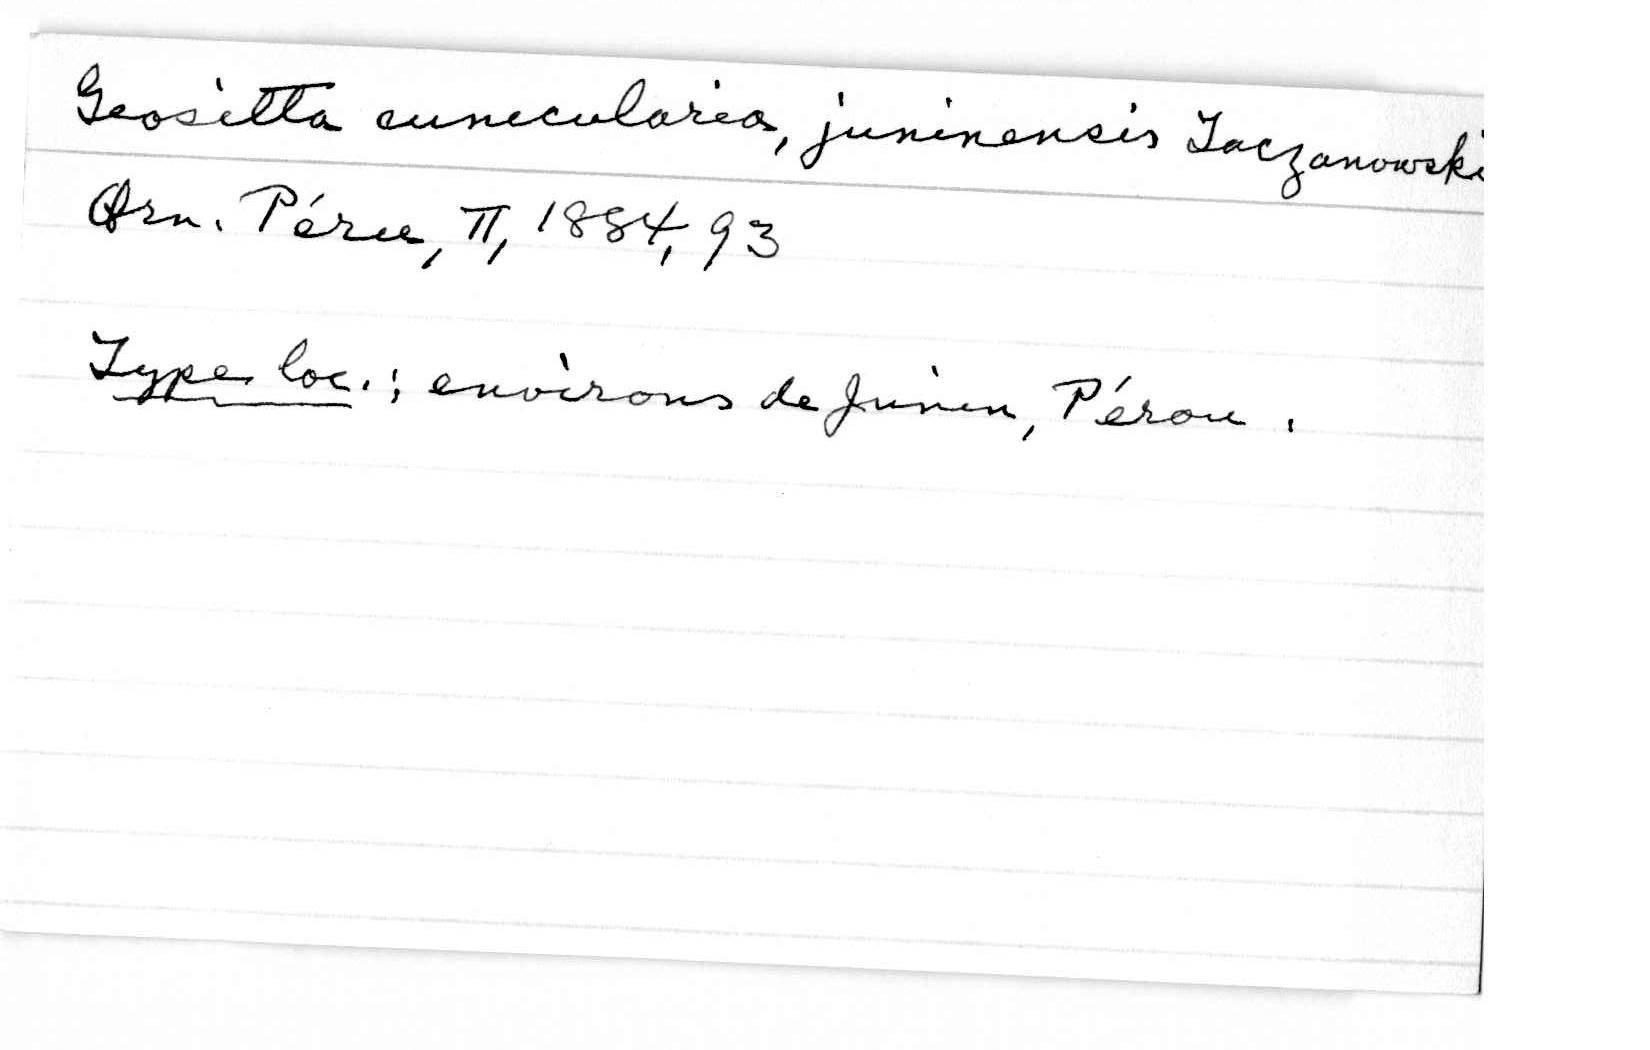 Geositta cunicularia, juninensis Taczanowski
Orn. Péru, II, 1884, 93
Type loc.: environs de Junin, Pérou.